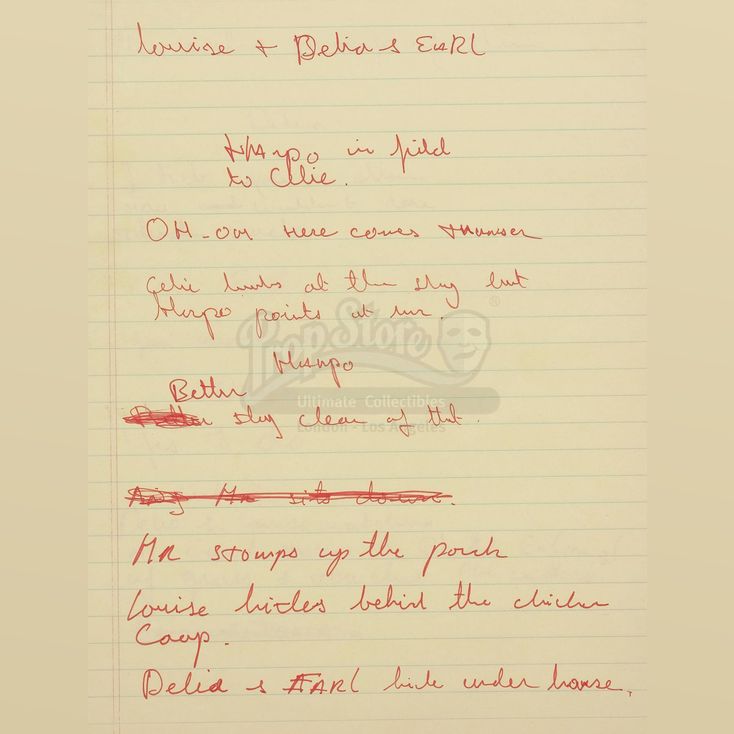 Louise + Delia & EARL
HARPO in field
to Celie.
OH-OOH HERE COMES THUNDER
Celie looks at the sky but
Harpo points at MR.
HARPO
Better
stay clear of that.
MR sits down.
MR STOMPS up the porch
Louise hides behind the chicken
Coop.
Delia & EARL hide under house.
PropStore
®
Ultimate Collectibles
London - Los Angeles